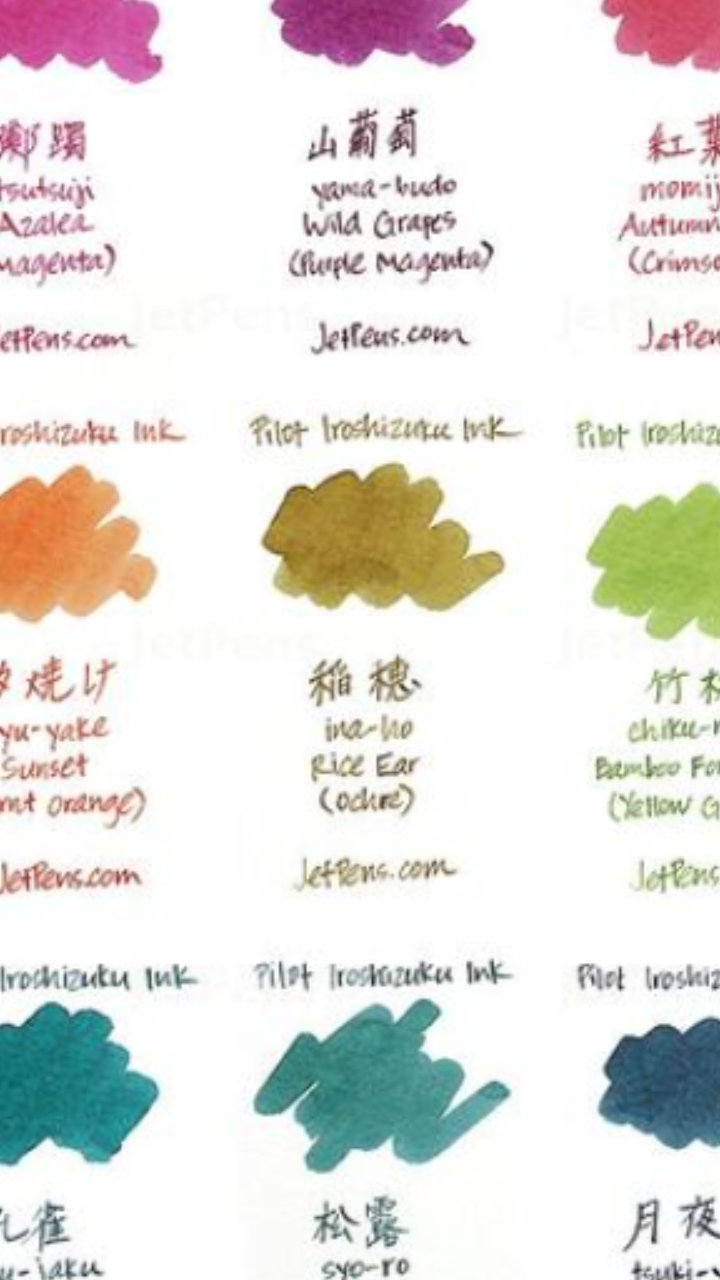 躑躅
tsutsuji
Azalea
Magenta)
JetPens.com
山葡萄
yama-budo
Wild Grapes
(Purple Magenta)
JetPens.com
紅葉
momij
Autumn
(Crimso
JetPen
Iroshizuku Ink
夕焼け
yu-yake
Sunset
rnt Orange)
JetPens.com
Pilot Iroshizuku Ink
稲穂
ina-ho
Rice Ear
(Ochre)
JetPens.com
Pilot Iroshizu
竹
chiku-
Bamboo For
(Yellow G
JetPens
Iroshizuku Ink
孔雀
u-jaku
Pilot Iroshizuku Ink
松露
syo-ro
Pilot Iroshiz
月夜
tsuki-y
JetPens
JetPens